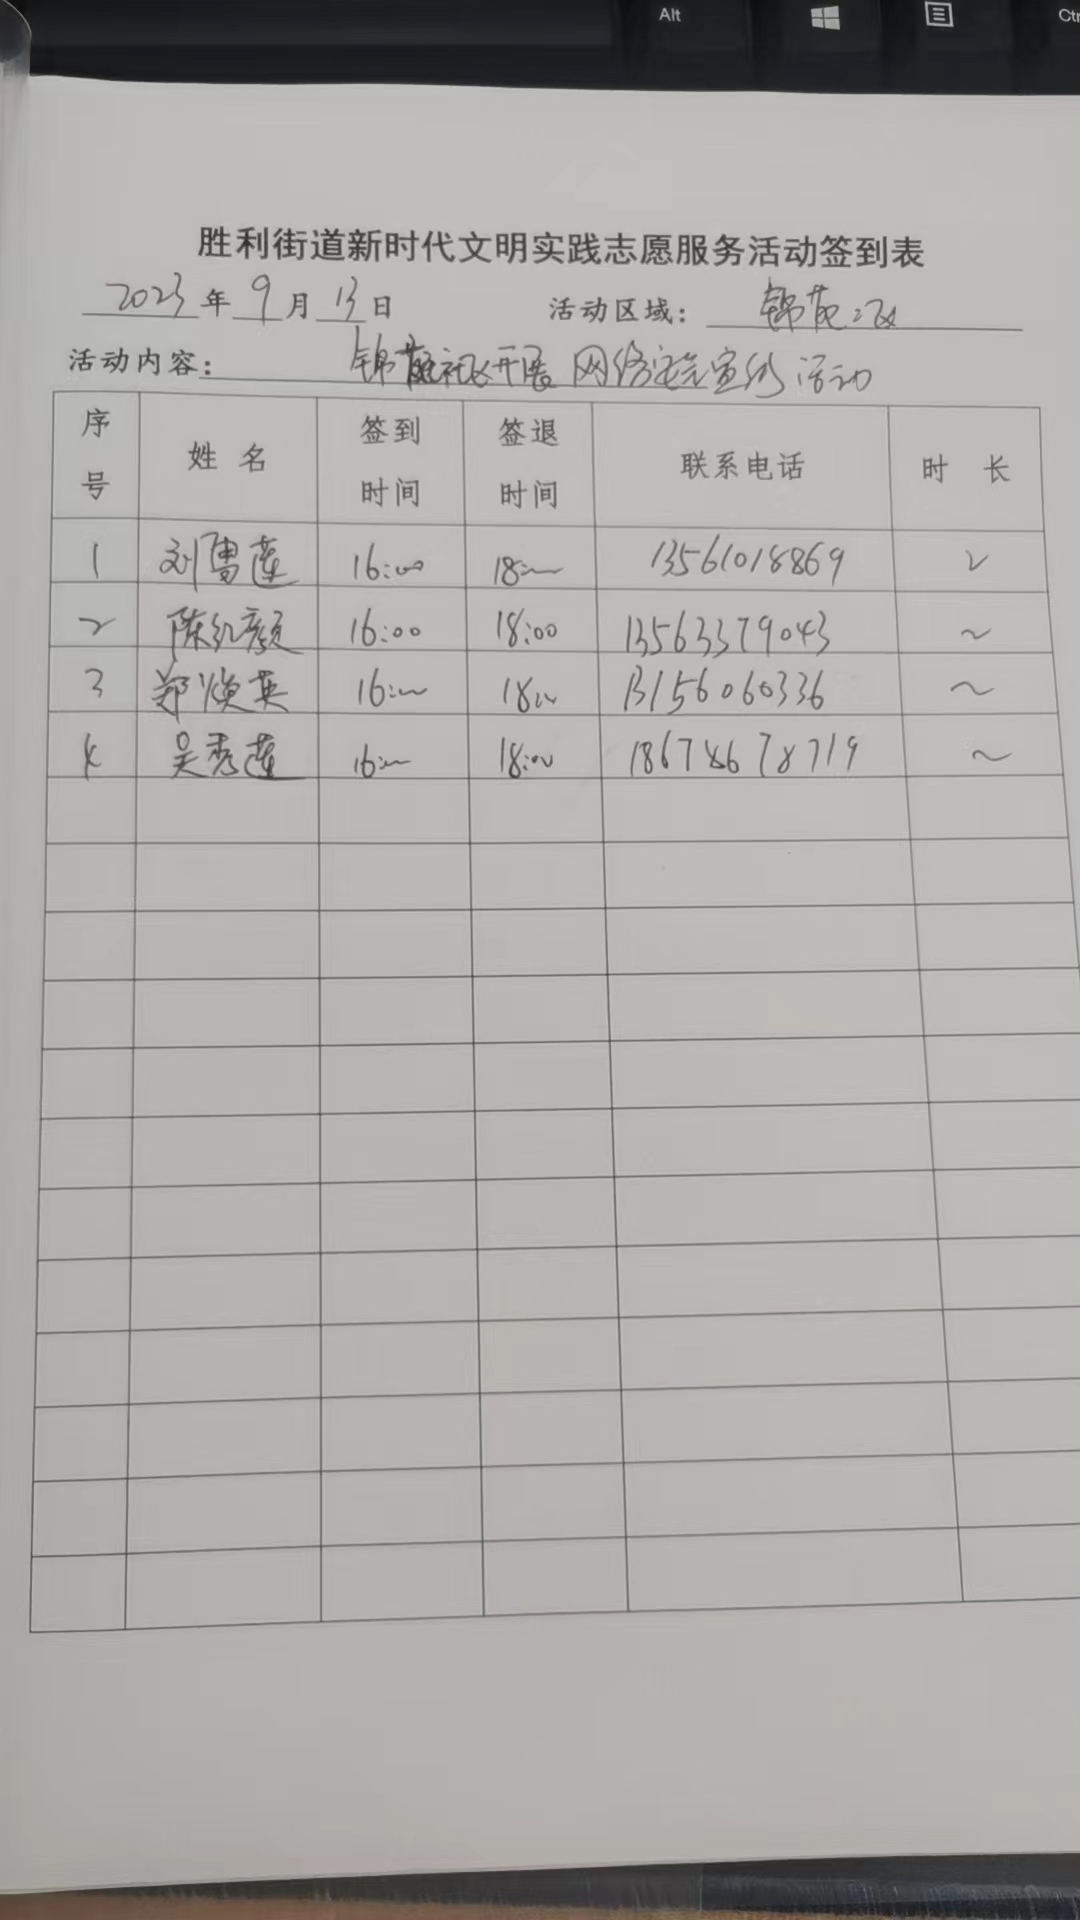 Alt Ctr
胜利街道新时代文明实践志愿服务活动签到表
2023年9月13日 活动区域：锦苑二区
活动内容：锦苑社区开展网络安全宣传活动
序号 姓名 签到时间 签退时间 联系电话 时长
1 刘曹莲 16:00 18:00 13561018869 2
2 陈红彦 16:00 18:00 13563379043 2
3 郑焕英 16:00 18:00 13156060336 2
4 吴秀莲 16:00 18:00 18678678719 2